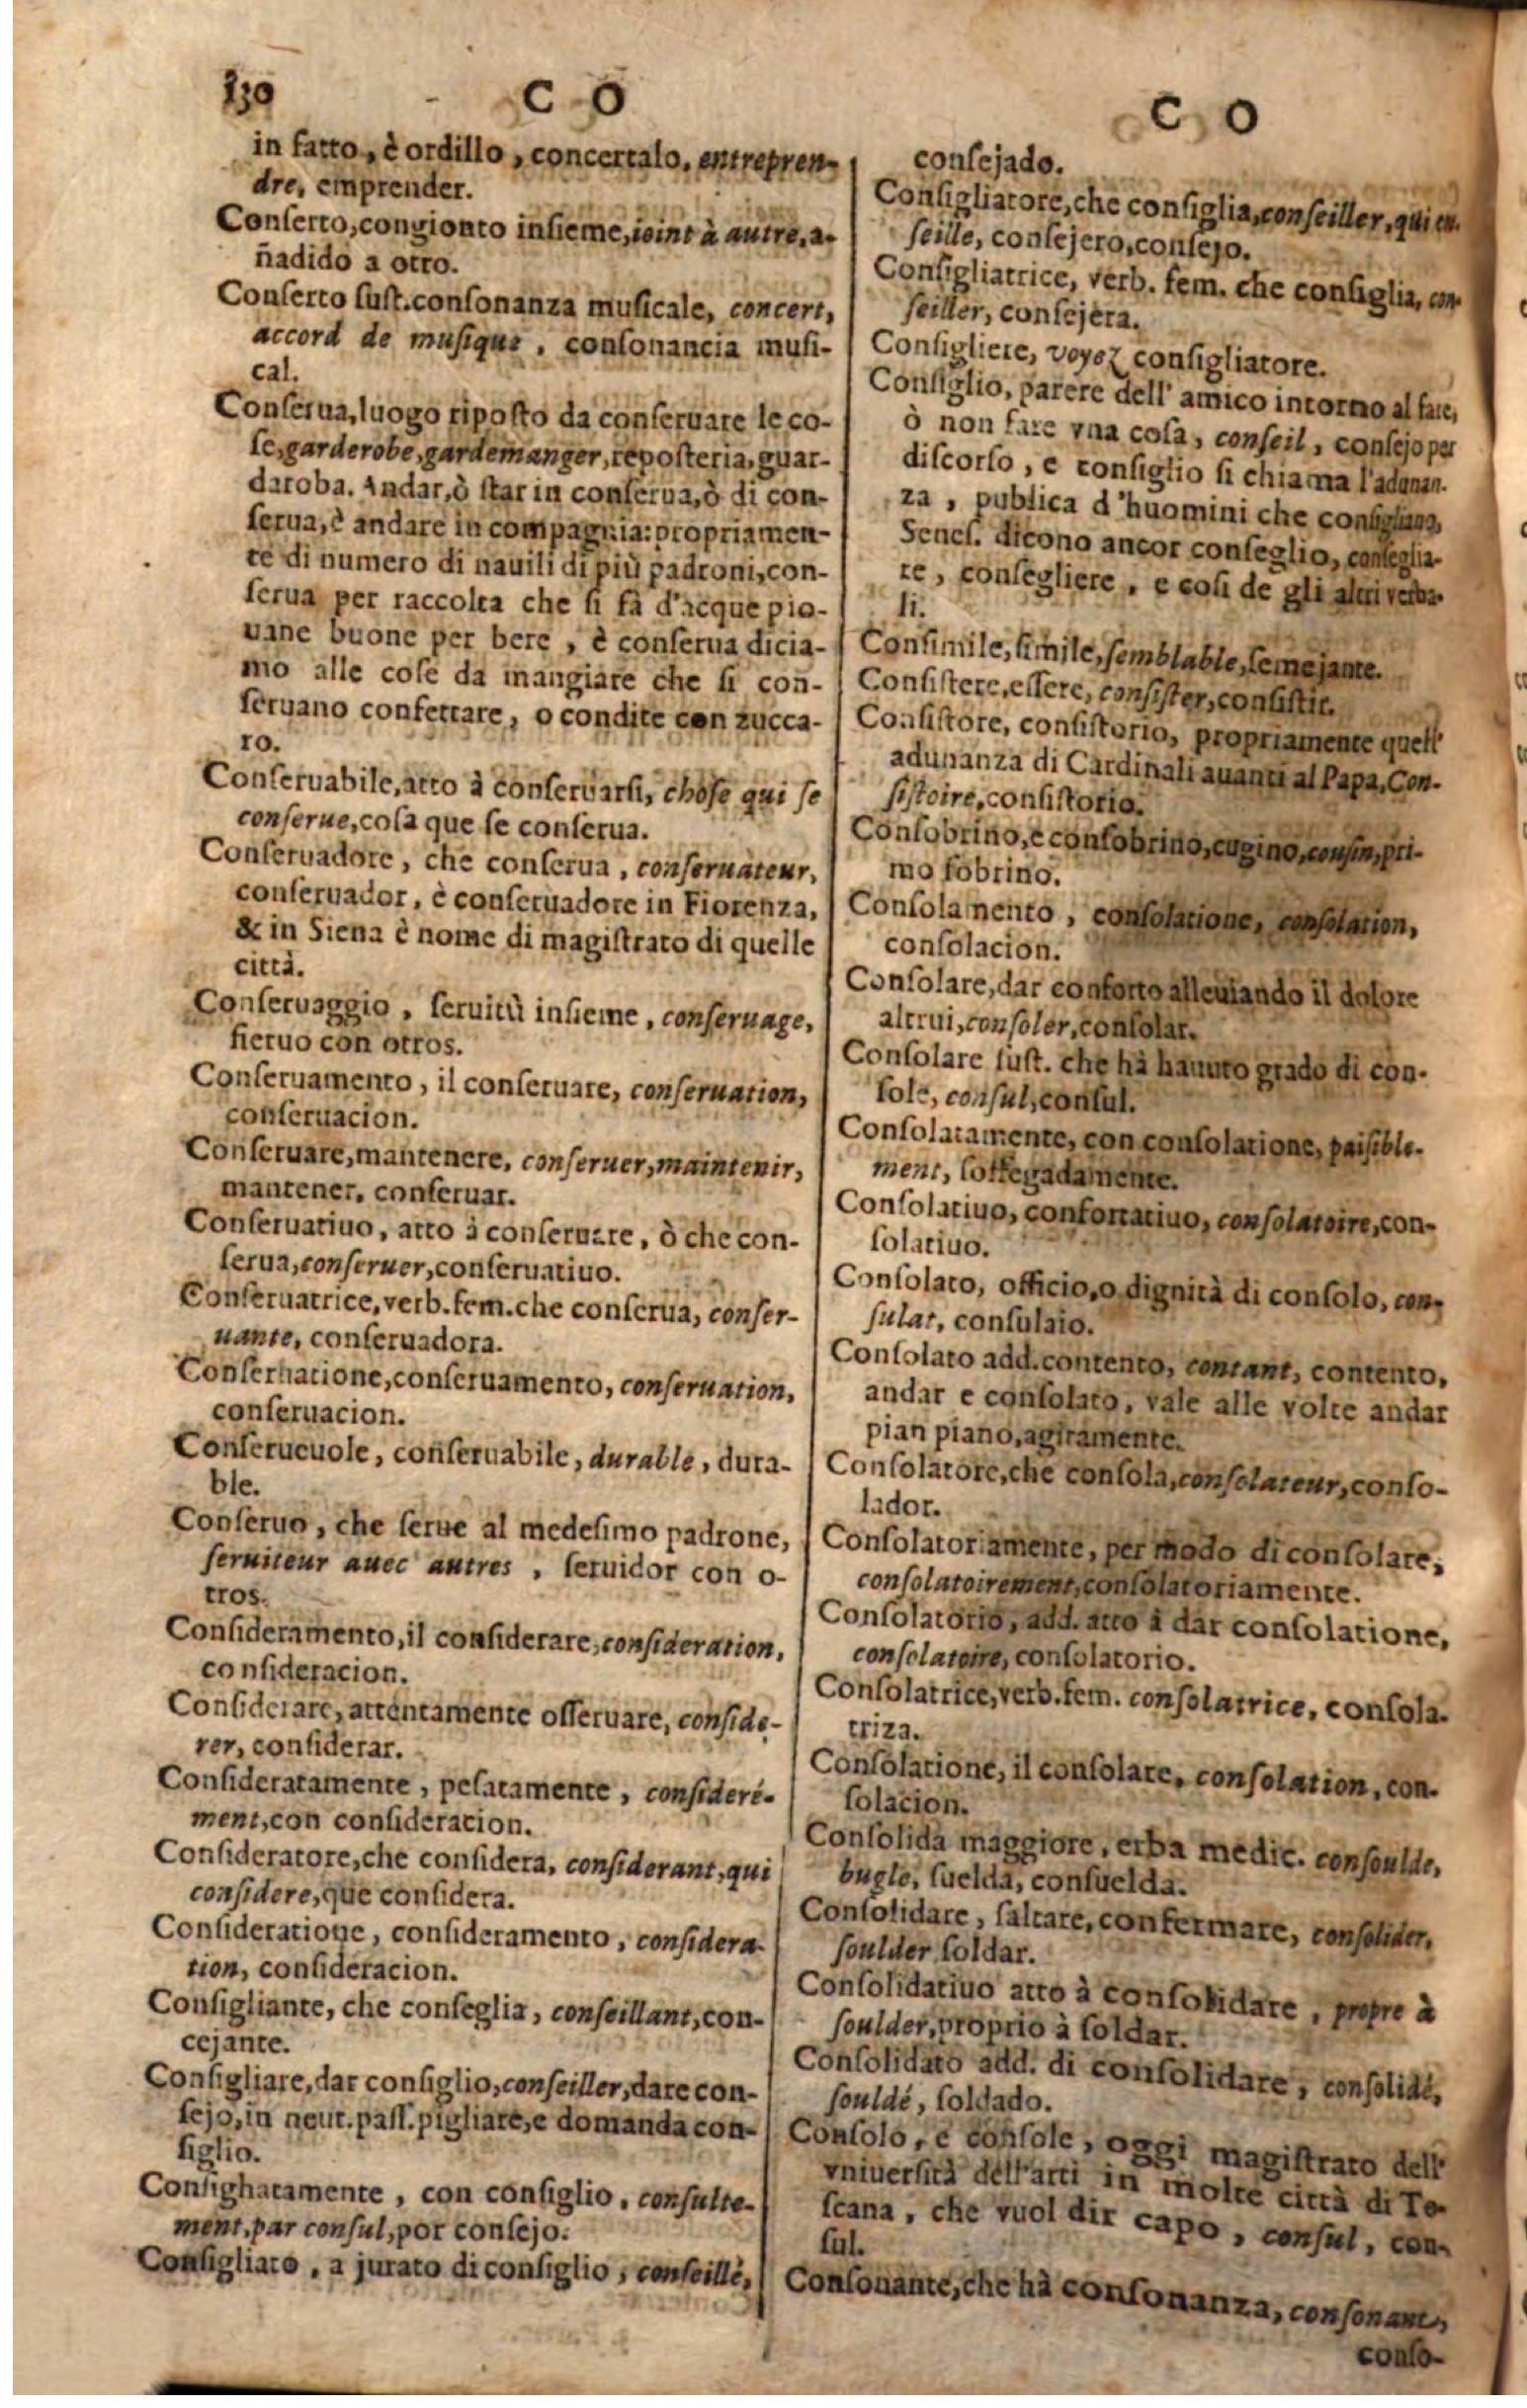 130 C O
in fatto, è ordillo, concertalo, entrepren-
dre, emprender.
Conſerto, congionto inſieme, ioint à autre, a-
ñadido a otro.
Conſerto ſuſt. conſonanza muſicale, concert,
accord de muſique, conſonancia muſi-
cal.
Conſerua, luogo ripoſto da conſeruare le co-
ſe, garderobe, gardemanger, repoſteria, guar-
daroba. Andar, ò ſtar in conſerua, ò di con-
ſerua, è andare in compagnia: propriamen-
te di numero di nauili di più padroni, con-
ſerua per raccolta che ſi fà d'acque pio-
uane buone per bere, è conſerua dicia-
mo alle coſe da mangiare che ſi con-
ſeruano confettare, o condite con zucca-
ro.
Conſeruabile, atto à conſeruarſi, choſe qui ſe
conſerue, coſa que ſe conſerua.
Conſeruadore, che conſerua, conſeruateur,
conſeruador, è conſeruadore in Fiorenza,
& in Siena è nome di magiſtrato di quelle
città.
Conſeruaggio, ſeruitù inſieme, conſeruage,
ſieruo con otros.
Conſeruamento, il conſeruare, conſeruation,
conſeruacion.
Conſeruare, mantenere, conſeruer, maintenir,
mantener, conſeruar.
Conſeruatiuo, atto à conſeruare, ò che con-
ſerua, conſeruer, conſeruatiuo.
Conſeruatrice, verb. fem. che conſerua, conſer-
uante, conſeruadora.
Conſeruatione, conſeruamento, conſeruation,
conſeruacion.
Conſerueuole, conſeruabile, durable, dura-
ble.
Conſeruo, che ſerue al medeſimo padrone,
ſeruiteur auec autres, ſeruidor con o-
tros.
Conſideramento, il conſiderare, conſideration,
conſideracion.
Conſiderare, attentamente oſſeruare, conſide-
rer, conſiderar.
Conſideratamente, peſatamente, conſideré-
ment, con conſideracion.
Conſideratore, che conſidera, conſiderant, qui
conſidere, que conſidera.
Conſideratione, conſideramento, conſidera-
tion, conſideracion.
Conſigliante, che conſeglia, conſeillant, con-
cejante.
Conſigliare, dar conſiglio, conſeiller, dare con-
ſejo, in neut. paſſ. pigliare, e domanda con-
ſiglio.
Conſighatamente, con conſiglio, conſulte-
ment, par conſul, por conſejo.
Conſigliato, a jurato di conſiglio, conſeillé,
C O
conſejado.
Conſigliatore, che conſiglia, conſeiller, qui cu-
ſeille, conſejero, conſejo.
Conſigliatrice, verb. fem. che conſiglia, con-
ſeiller, conſejera.
Conſigliere, voyez conſigliatore.
Conſiglio, parere dell' amico intorno al fare,
ò non fare vna coſa, conſeil, conſejo per
diſcorſo, e conſiglio ſi chiama l'adunan-
za, publica d'huomini che conſigliano,
Seneſ. dicono ancor conſeglio, conſeglia-
re, conſegliere, e coſi de gli altri verba-
li.
Conſimile, ſimile, ſemblable, ſemejante.
Conſiſtere, eſſere, conſiſter, conſiſtir.
Conſiſtore, conſiſtorio, propriamente quell'
adunanza di Cardinali auanti al Papa, Con-
ſiſtoire, conſiſtorio.
Conſobrino, e conſobrino, cugino, couſin, pri-
mo ſobrino.
Conſolamento, conſolatione, conſolation,
conſolacion.
Conſolare, dar conforto alleuiando il dolore
altrui, conſoler, conſolar.
Conſolare ſuſt. che hà hauuto grado di con-
ſole, conſul, conſul.
Conſolatamente, con conſolatione, paiſible-
ment, ſoſſegadamente.
Conſolatiuo, confortatiuo, conſolatoire, con-
ſolatiuo.
Conſolato, officio, o dignità di conſolo, con-
ſulat, conſulaio.
Conſolato add. contento, contant, contento,
andar e conſolato, vale alle volte andar
pian piano, agitamente.
Conſolatore, che conſola, conſolateur, conſo-
lador.
Conſolatoriamente, per modo di conſolare,
conſolatoirement, conſolatoriamente.
Conſolatorio, add. atto à dar conſolatione,
conſolatoire, conſolatorio.
Conſolatrice, verb. fem. conſolatrice, conſola-
triza.
Conſolatione, il conſolare, conſolation, con-
ſolacion.
Conſolida maggiore, erba medic. conſoulde,
bugle, ſuelda, conſuelda.
Conſolidare, ſaltare, confermare, conſolider,
ſoulder, ſoldar.
Conſolidatiuo atto à conſolidare, propre à
ſoulder, proprio à ſoldar.
Conſolidato add. di conſolidare, conſolidé,
ſouldé, ſoldado.
Conſolo, e conſole, oggi magiſtrato dell'
vniuerſità dell'arti in molte città di To-
ſcana, che vuol dir capo, conſul, con-
ſul.
Conſonante, che hà conſonanza, conſonant,
conſo-